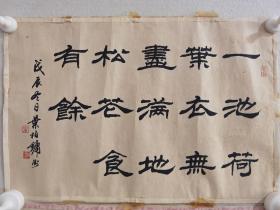 一池荷
葉衣無
盡滿地
松花食
有餘
戊辰冬日葉柏